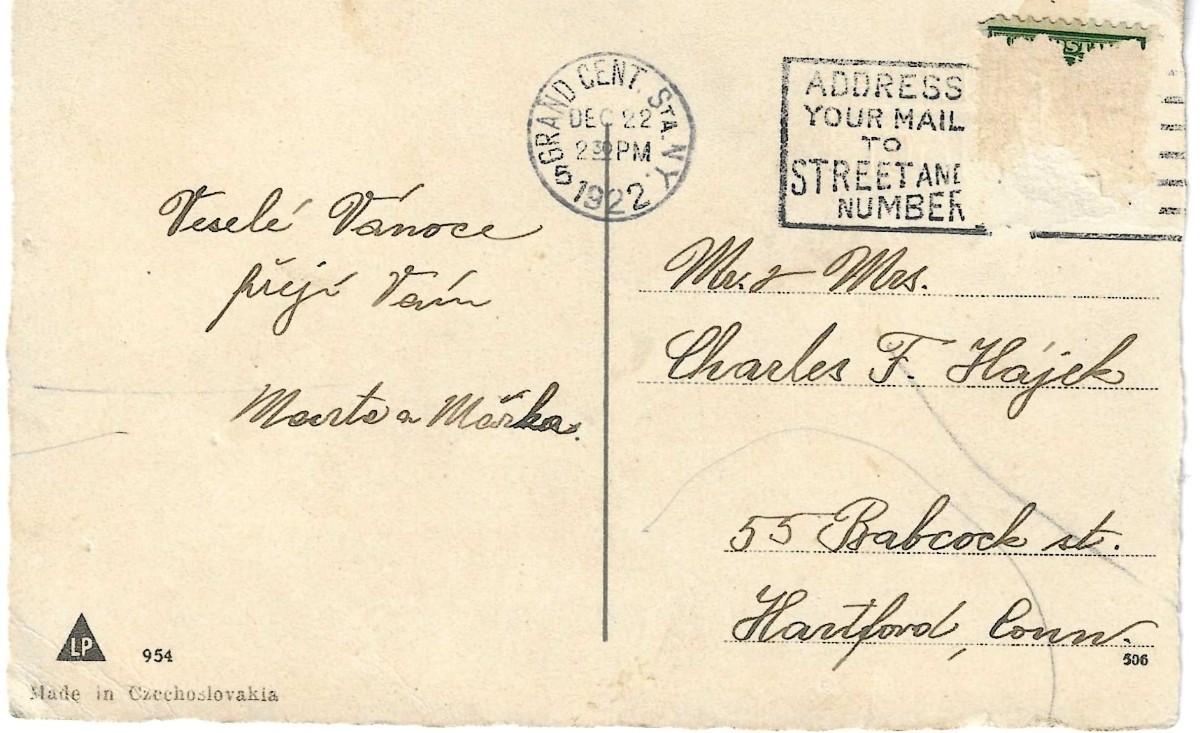 GRAND CENT. STA. N.Y.
5
DEC 22
2 30 PM
1922
ADDRESS
YOUR MAIL
TO
STREET AND
NUMBER
Veselé Vánoce
přejí Vám
Marta a Mářka.
Mr. & Mrs.
Charles F. Hájek
55 Babcock st.
Hartford, Conn.
LP
954
506
Made in Czechoslovakia